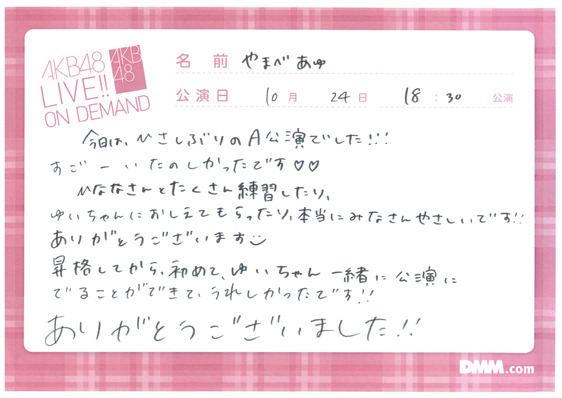 AKB48
LIVE!!
ON DEMAND
AKB
48
名前 やまべあゆ
公演日 10月 24日 18:30 公演
今日は、ひさしぶりのA公演でした!!!
すごーいたのしかったです♡♡
ひななさんとたくさん練習したり、
ゆいちゃんにおしえてもらったり、本当にみなさんやさしいです!!
ありがとうございます
昇格してから、初めて、ゆいちゃん一緒に公演に
でることができて、うれしかったです!!
ありがとうございました!!
DMM.com